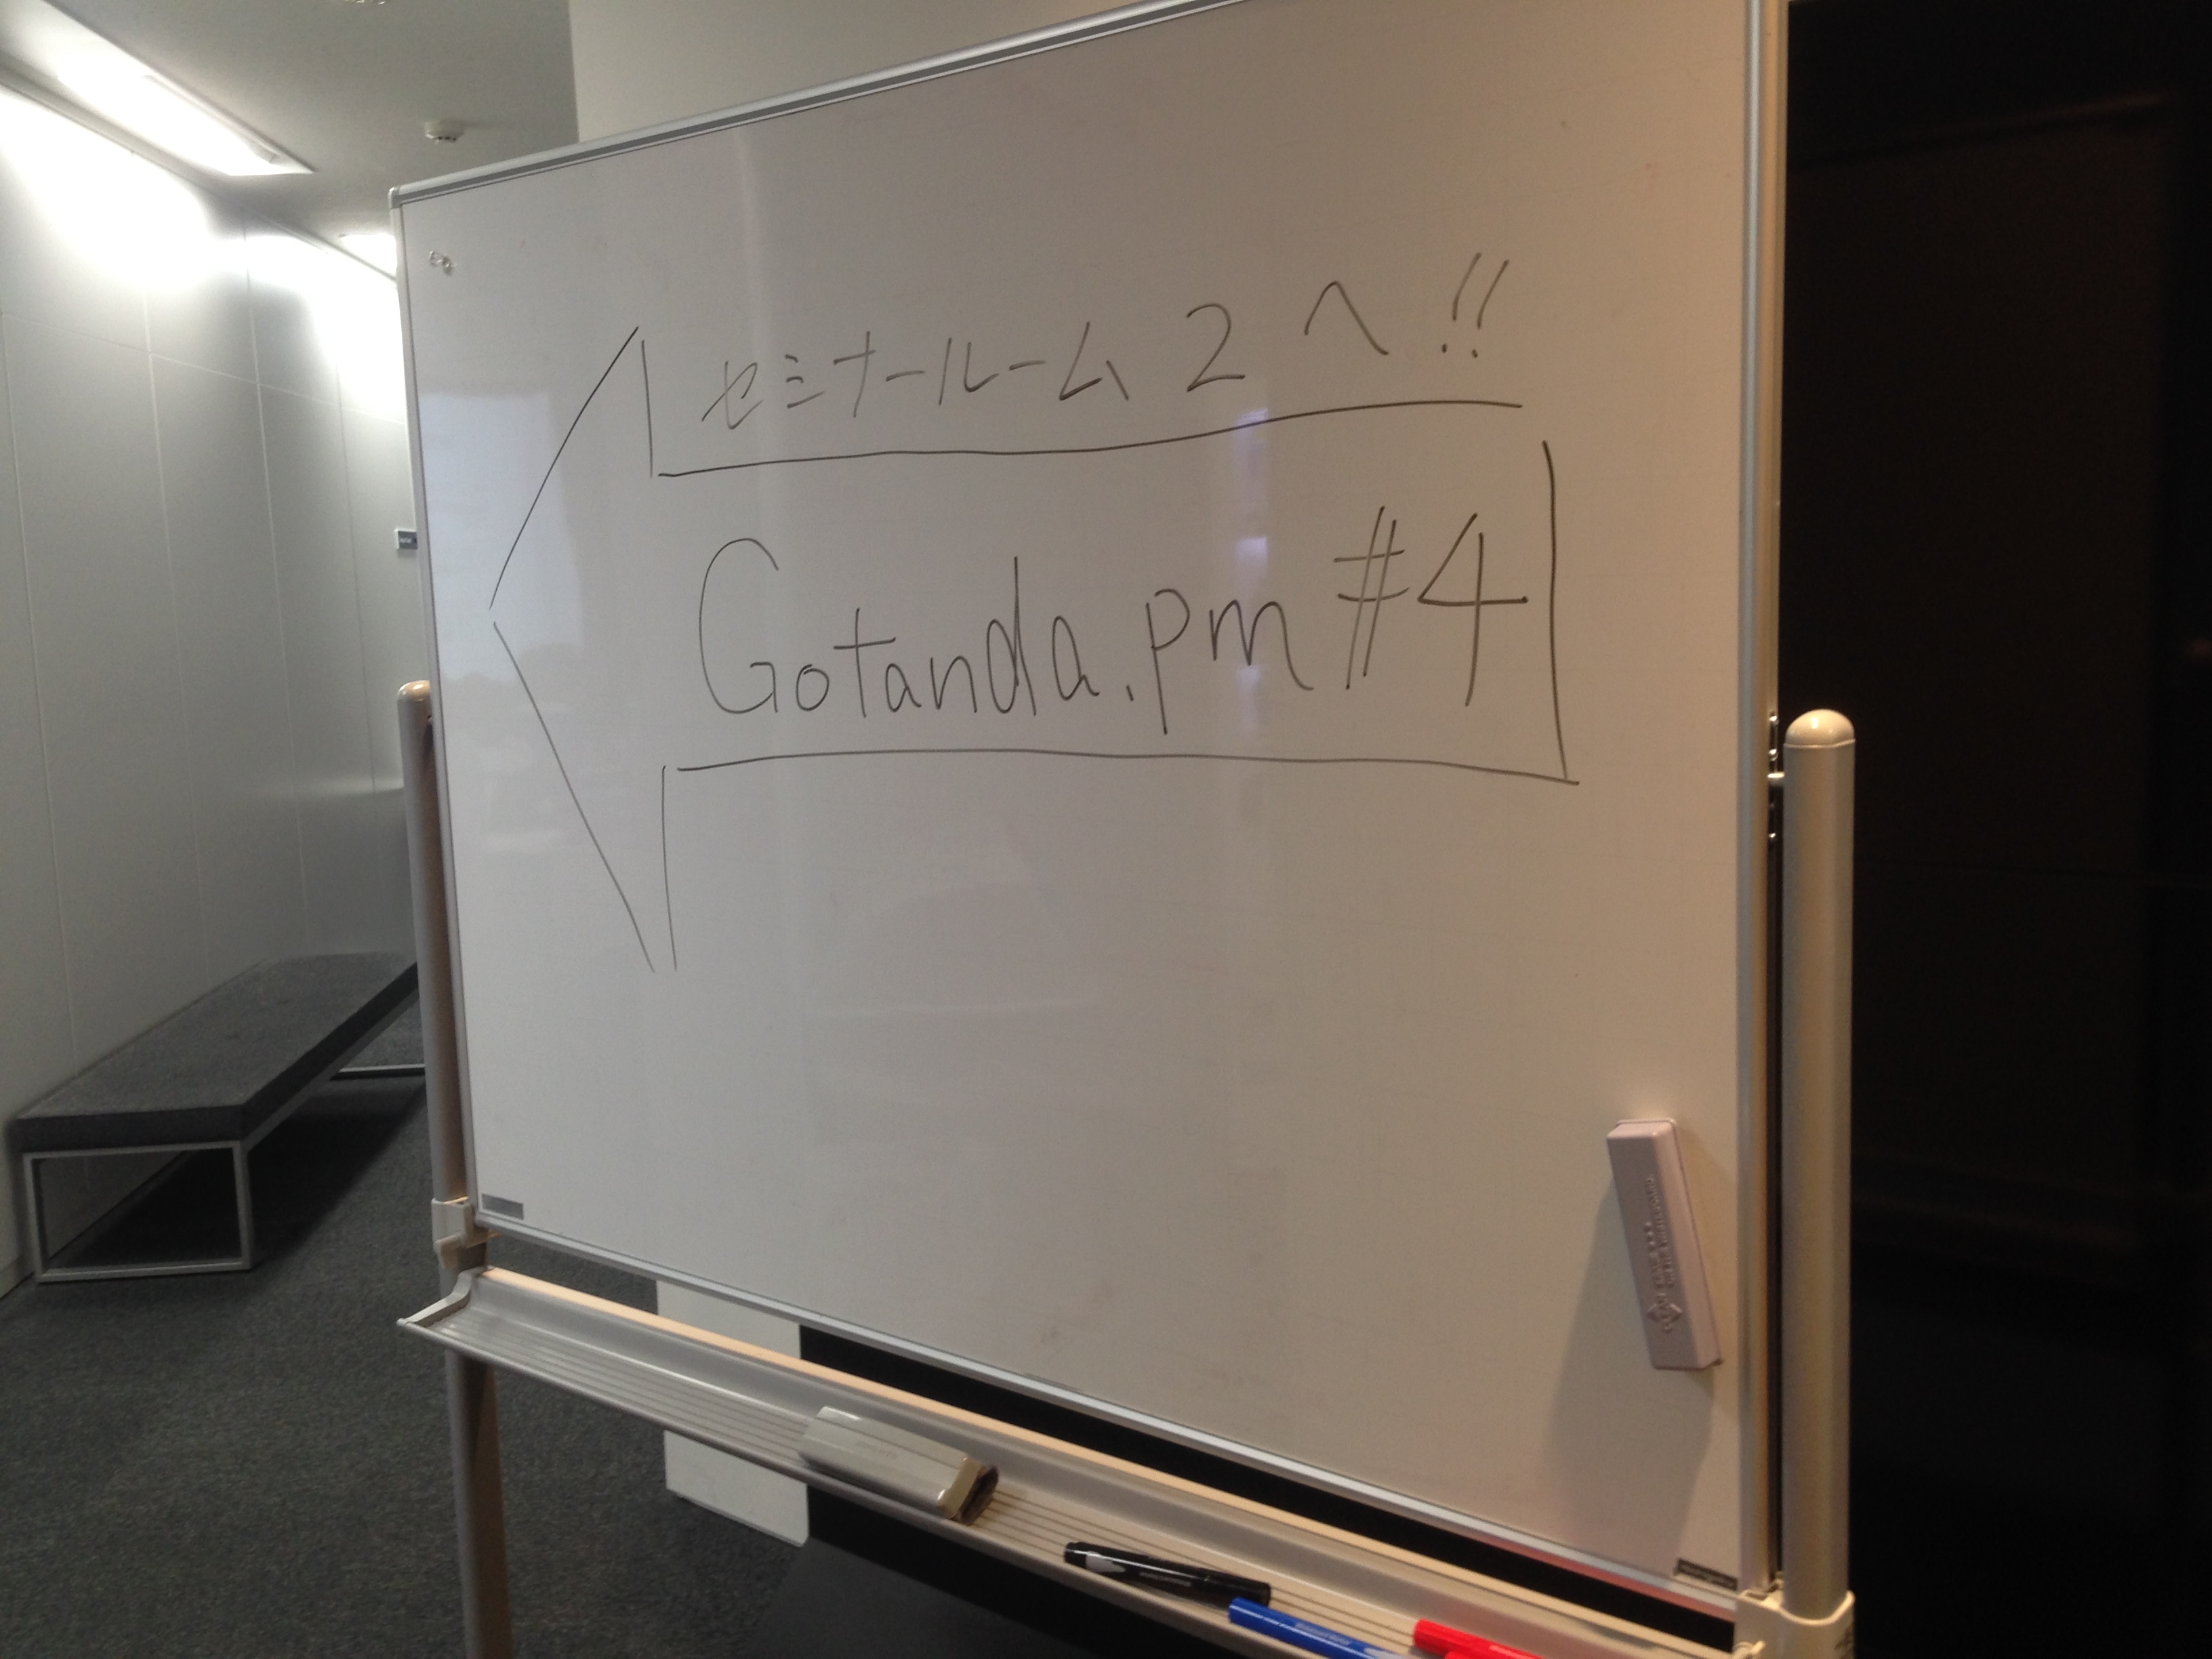 セミナールーム 2 へ!!
Gotanda.pm #4